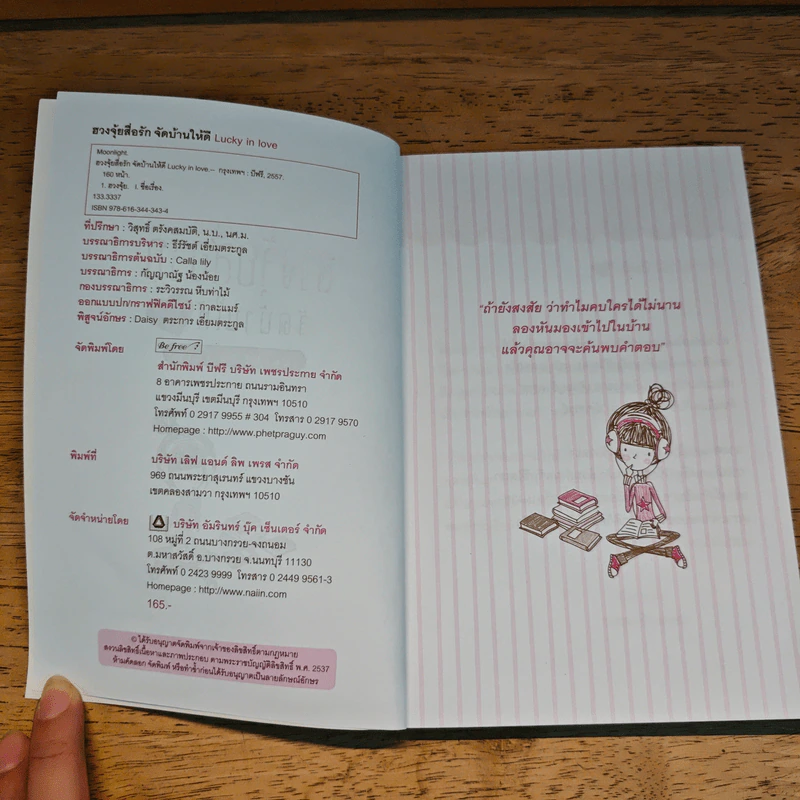 ฮวงจุ้ยสื่อรัก จัดบ้านให้ดี Lucky in love
Moonlight.
ฮวงจุ้ยสื่อรัก จัดบ้านให้ดี Lucky in love.-- กรุงเทพฯ : บีฟรี, 2557.
160 หน้า.
1. ฮวงจุ้ย. I. ชื่อเรื่อง.
133.3337
ISBN 978-616-344-343-4
ที่ปรึกษา : วิสุทธิ์ ตรังคสมบัติ, น.บ., นศ.ม.
บรรณาธิการบริหาร : ธีร์รัชต์ เอี่ยมตระกูล
บรรณาธิการต้นฉบับ : Calla lily
บรรณาธิการ : กัญญาณัฐ น้องน้อย
กองบรรณาธิการ : ระวิวรรณ หีบท่าไม้
ออกแบบปก/กราฟฟิคดีไซน์ : กาละแมร์
พิสูจน์อักษร : Daisy ตระการ เอี่ยมตระกูล
จัดพิมพ์โดย
Be free
สำนักพิมพ์ บีฟรี บริษัท เพชรประกาย จำกัด
8 อาคารเพชรประกาย ถนนรามอินทรา
แขวงมีนบุรี เขตมีนบุรี กรุงเทพฯ 10510
โทรศัพท์ 0 2917 9955 # 304 โทรสาร 0 2917 9570
Homepage : http://www.phetpraguy.com
พิมพ์ที่
บริษัท เลิฟ แอนด์ ลิพ เพรส จำกัด
969 ถนนพระยาสุเรนทร์ แขวงบางชัน
เขตคลองสามวา กรุงเทพฯ 10510
จัดจำหน่ายโดย
บริษัท อัมรินทร์ บุ๊ค เซ็นเตอร์ จำกัด
108 หมู่ที่ 2 ถนนบางกรวย-จงถนอม
ต.มหาสวัสดิ์ อ.บางกรวย จ.นนทบุรี 11130
โทรศัพท์ 0 2423 9999 โทรสาร 0 2449 9561-3
Homepage : http://www.naiin.com
165.-
© ได้รับอนุญาตจัดพิมพ์จากเจ้าของลิขสิทธิ์ตามกฎหมาย
สงวนลิขสิทธิ์เนื้อหาและภาพประกอบ ตามพระราชบัญญัติลิขสิทธิ์ พ.ศ. 2537
ห้ามคัดลอก จัดพิมพ์ หรือทำซ้ำก่อนได้รับอนุญาตเป็นลายลักษณ์อักษร
"ถ้ายังสงสัย ว่าทำไมคบใครได้ไม่นาน
ลองหันมองเข้าไปในบ้าน
แล้วคุณอาจจะค้นพบคำตอบ"